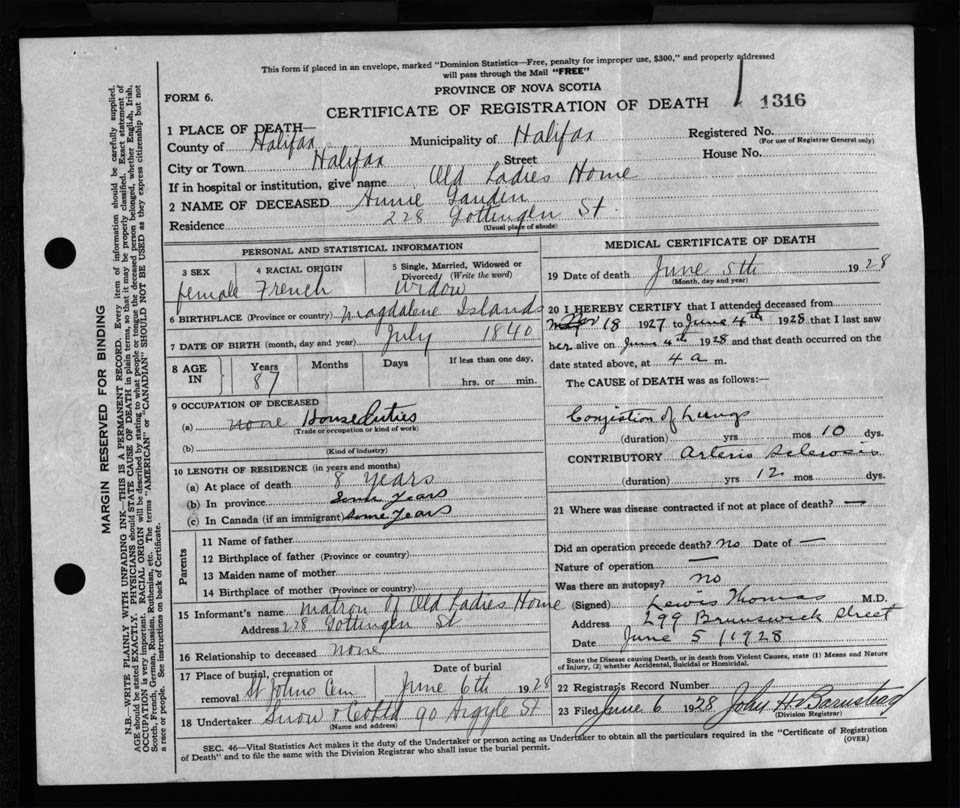 This form if placed in an envelope, marked "Dominion Statistics—Free, penalty for improper use, $300," and properly addressed
will pass through the Mail "FREE"
PROVINCE OF NOVA SCOTIA
FORM 6.
CERTIFICATE OF REGISTRATION OF DEATH 1316
1 PLACE OF DEATH—
County of Halifax Municipality of Halifax Registered No.
(For use of Registrar General only)
City or Town Halifax Street House No.
If in hospital or institution, give name Old Ladies Home
2 NAME OF DECEASED Annie Gaudin
Residence 228 Gottingen St
(Usual place of abode)
PERSONAL AND STATISTICAL INFORMATION
3 SEX 4 RACIAL ORIGIN 5 Single, Married, Widowed or Divorced (Write the word)
female French Widow
6 BIRTHPLACE (Province or country) Magdalene Islands
7 DATE OF BIRTH (month, day and year) July 1840
8 AGE IN Years Months Days If less than one day,
87 hrs. or min.
9 OCCUPATION OF DECEASED
(a) none House Duties
(Trade or occupation or kind of work)
(b)
(Kind of industry)
10 LENGTH OF RESIDENCE (in years and months)
(a) At place of death 8 Years
(b) In province Some Years
(c) In Canada (if an immigrant) Some Years
Parents
11 Name of father
12 Birthplace of father (Province or country)
13 Maiden name of mother
14 Birthplace of mother (Province or country)
15 Informant's name Matron Of Old Ladies Home
Address 228 Gottingen St
16 Relationship to deceased none
17 Place of burial, cremation or Date of burial
removal St Johns Cem June 6th 1928
18 Undertaker Snow & 90 Argyle St
(Name and address)
MEDICAL CERTIFICATE OF DEATH
19 Date of death June 5th 1928
(Month, day and year)
20 I HEREBY CERTIFY that I attended deceased from
18 1927 to June 4th 1928 that I last saw
her alive on June 4th 1928 and that death occurred on the
date stated above, at 4 a m.
The CAUSE of DEATH was as follows:—
Conjestion of Lungs
(duration) yrs mos 10 dys.
CONTRIBUTORY Arterio Sclerosis
(duration) yrs 12 mos dys.
21 Where was disease contracted if not at place of death? —
Did an operation precede death? no Date of —
Nature of operation —
Was there an autopsy? no
(Signed) Lewis Thomas M.D.
Address 299 Brunswick Street
Date June 5 / 1928
State the Disease causing Death, or in death from Violent Causes, state (1) Means and Nature
of Injury, (2) whether Accidental, Suicidal or Homicidal.
22 Registrar's Record Number
23 Filed June 6 1928 John H Barnstead
(Division Registrar)
SEC. 46—Vital Statistics Act makes it the duty of the Undertaker or person acting as Undertaker to obtain all the particulars required in the "Certificate of Registration
of Death" and to file the same with the Division Registrar who shall issue the burial permit. (OVER)
MARGIN RESERVED FOR BINDING
N.B.—WRITE PLAINLY WITH UNFADING INK—THIS IS A PERMANENT RECORD. Every item of information should be carefully supplied.
AGE should be stated EXACTLY. PHYSICIANS should STATE CAUSE OF DEATH in plain terms, so that it may be properly classified. Exact statement of
OCCUPATION is very important. RACIAL ORIGIN will be described by stating to what people or tongue the deceased person belonged, whether English, Irish,
Scotch, French, German, Russian, Ruthenian, etc. The terms "AMERICAN" or "CANADIAN" SHOULD NOT BE USED as they express citizenship but not
a race or people. See instructions on back of Certificate.